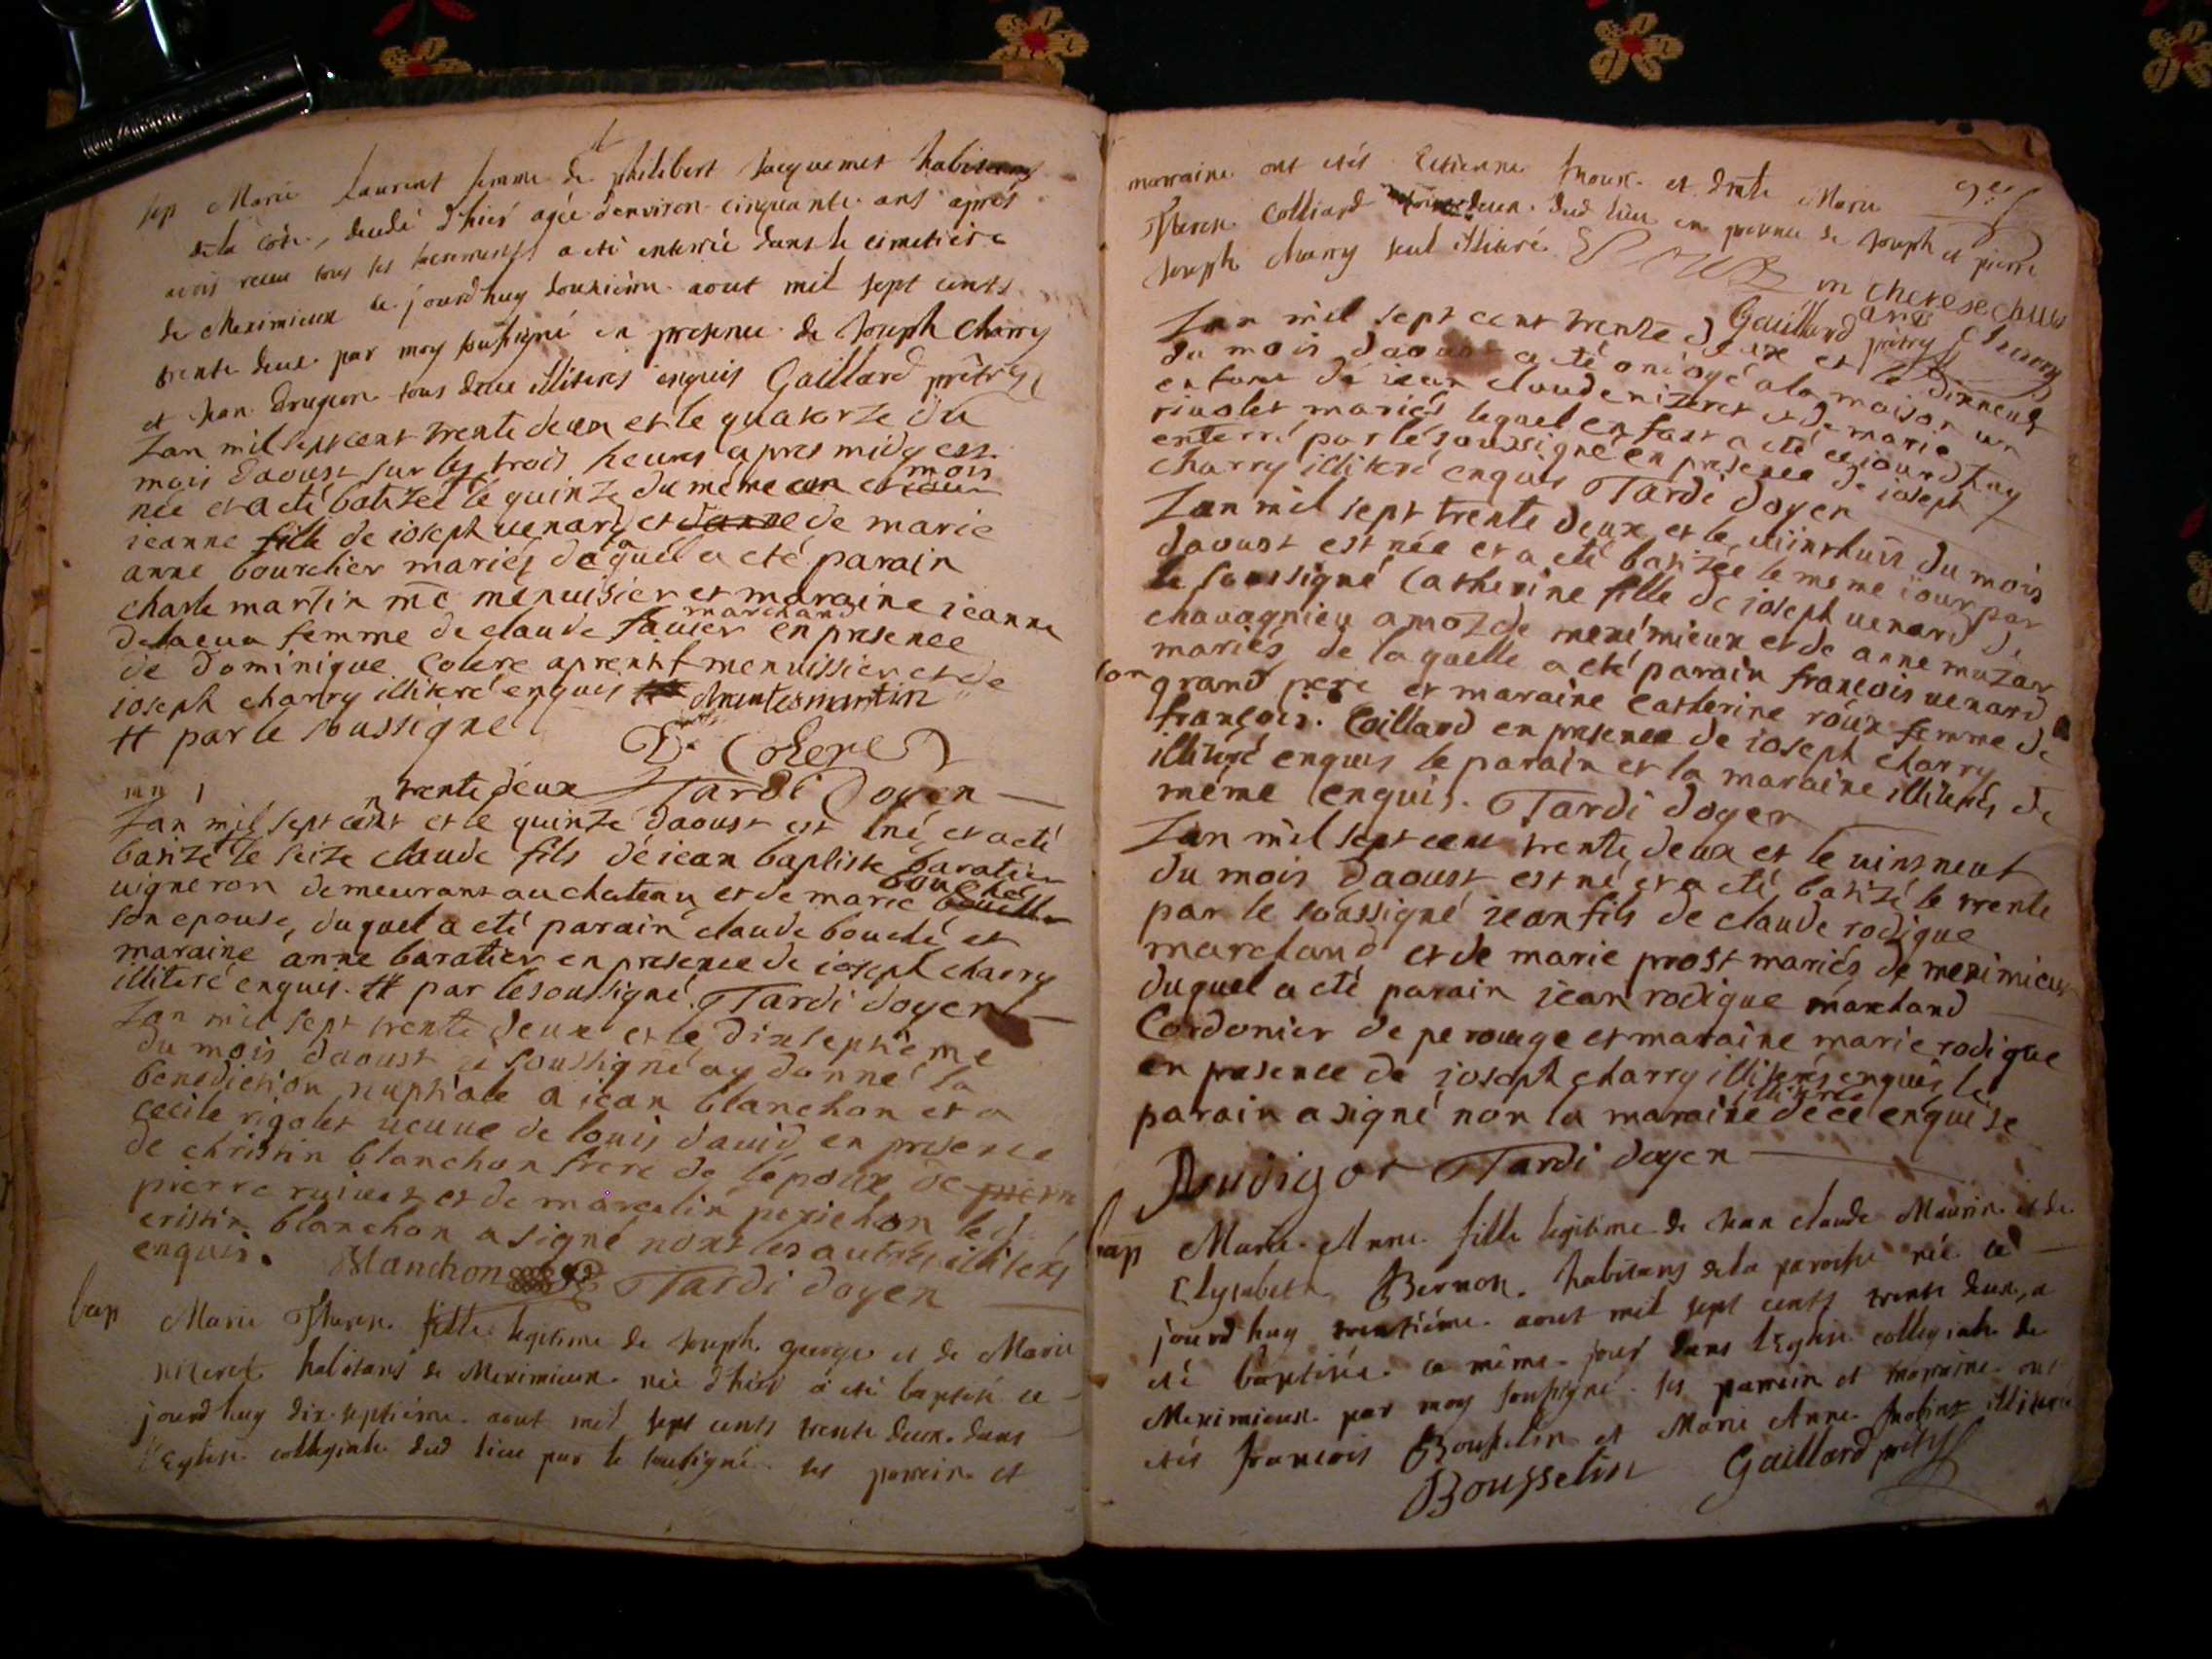 sep Marie Laurent femme de philibert Jacquemet habitans
de la côte, decedé d'hier agée d'environ cinquante ans aprés
avoir receu tous les sacrements, a eté enterrée dans le cimetiere
de Meximieux ce jourd'huy douxiéme aout mil sept cents
trente deux par moy soussigné en presence de Joseph Charry
et Jean drugeon tous deux illiterés enquis Gaillard prêtre
Lan mil sept cent trente deux et le quatorze du
mois daoust sur les trois heures apres midy est
née et a eté batizée le quinze du même mois
ieanne fille de ioseph uenard et de marie
anne bourdier mariés de la quel a eté parain
charle martin me menuisier et maraine ieanne
delaeua femme de claude fauier marchand en presence
de dominique Cotere aprentif menuissier et de
ioseph charry illiteré enquis martin
# par le soussigné
D. Cohere
trente deux Tardi Doyen
Lan mil sept cent et le quinze daoust est né et a eté
batizé le seize claude fils de iean baptiste baratier
uigneron demeurant au chateau et de marie bouché
son epouse, du quel a eté parain claude bouché et
maraine anne baratier en presence de ioseph charry
illiteré enquis. # par le soussigné. Tardi doyen
Lan mil sept trente deux et le dixseptieme
du mois daoust ie soussigné ay donné la
benediction nuptiale a iean blanchon et a
cecile rigolet ueuue de louis dauid en presence
de christin blanchon frere de lépoux de pierre
pierre et de marcelin perichon led.
cristin blanchon a signé nont les autres illiterés
enquis. Blanchon Tardi doyen
bap Marie Therese fille legitime de Joseph george et de Marie
nizeret habitans de Meximieux née d'hier a eté baptisé ce
jourd'huy dix septiéme aout mil sept cents trente deux dans
l'Eglise collegiale dud lieu par le soussigné. ses parrein et
marraine ont etés Estienne et Marie
Therese Colliard dud lieu en presence de Joseph et pierre
Joseph charry seul illiteré
Gaillard prêtre Charry
Lan mil sept cent trente deux et le dixneuf
du mois daoust a eté ondoyé a la maison un
enfant de iean claude nizeret et de marie
riuolet mariés lequel enfant a eté ceiourdhuy
enterré par le soussigné en presence de ioseph
charry illiteré enquis Tardi doyen
Lan mil sept trente deux et le uinthuit du mois
daoust est née et a eté batizée le meme iour par
le soussigné Catherine fille de ioseph uenard de
chauagnieu amoz de meximieux et de anne mazar
mariés de la quelle a eté parain françois uenard
son grand pere et maraine Catherine roux femme de
françois. Caillard en presence de ioseph charry
illiteré enquis le parain et la maraine illiterés de
même enquis. Tardi doyen
Lan mil sept cent trente deux et le uintneuf
du mois daoust est né et a eté batizé le trente
par le soussigné iean fils de claude rodigue
marchand et de marie prost mariés de meximieux
duquel a eté parain iean rodigue marchand
Cordonier de perouge et maraine marie rodigue
en presence de ioseph charry illiterés enquis le
parain a signé non la maraine illiterée de ce enquise
Tardi doyen
bap Marie Anne fille legitime de Jean claude Maurin et de
Elysabeth Bernon habitans de la paroisse née ce
jourd'huy trentiéme aout mil sept cents trente deux, a
eté baptisée ce même jour dans l'Eglise collegiale de
Meximieux par moy soussigné. ses parrein et marraine ont
etés françois Bousselin et Marie Anne illiteré
Bousselin Gaillard prêtre